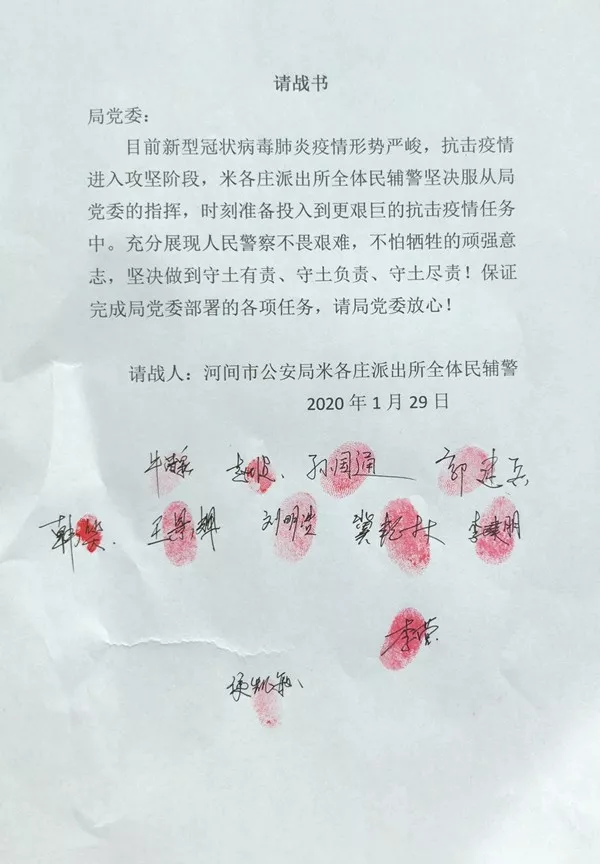 请战书
局党委：
目前新型冠状病毒肺炎疫情形势严峻，抗击疫情
进入攻坚阶段，米各庄派出所全体民辅警坚决服从局
党委的指挥，时刻准备投入到更艰巨的抗击疫情任务
中。充分展现人民警察不畏艰难，不怕牺牲的顽强意
志，坚决做到守土有责、守土负责、守土尽责！保证
完成局党委部署的各项任务，请局党委放心！
请战人：河间市公安局米各庄派出所全体民辅警
2020 年 1 月 29 日
孙国通 郭建兵
王景辉 刘明浩 李建明
李莹